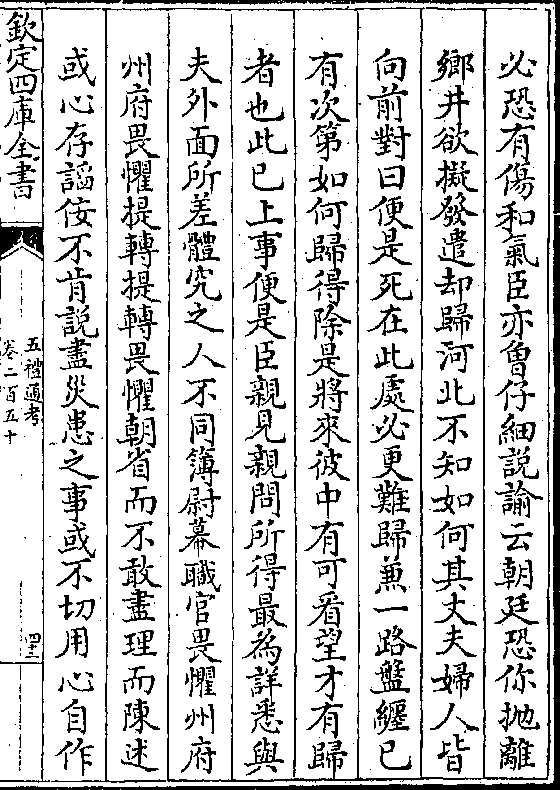 必恐有傷和氣臣亦曾仔細説諭云朝廷恐你抛離
鄉井欲擬發遣却歸河北不知如何其丈夫婦人皆
向前對曰便是死在此處必更難歸兼一路盤纒已
有次第如何歸得除是將來彼中有可看望才有歸
者也此已上事便是臣親見親問所得最為詳悉與
夫外面所差體究之人不同簿尉幕職官畏懼州府
州府畏懼提轉提轉畏懼朝省而不敢盡理而陳述
或心存諂佞不肯説盡災患之事或不切用心自作
欽定四庫全書
五禮通考
卷二百五十
四十三